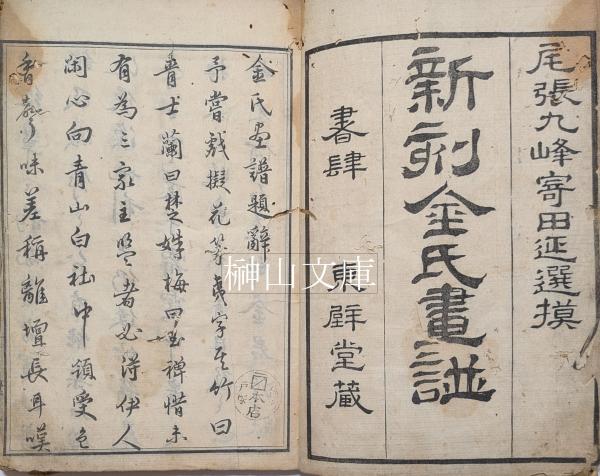 尾張九峰寄田延選摸
新刻金氏畫譜
書肆 東壁堂蔵
榊山文庫
金氏画譜題辭
予嘗戯擬花等爽字呈竹曰
晋士蘭曰楚姝梅曰 禅惜未
有為三家主盟者必得伊人
閑心向青山白社中領受色
香聲味差稱離壇長耳嘆
本店